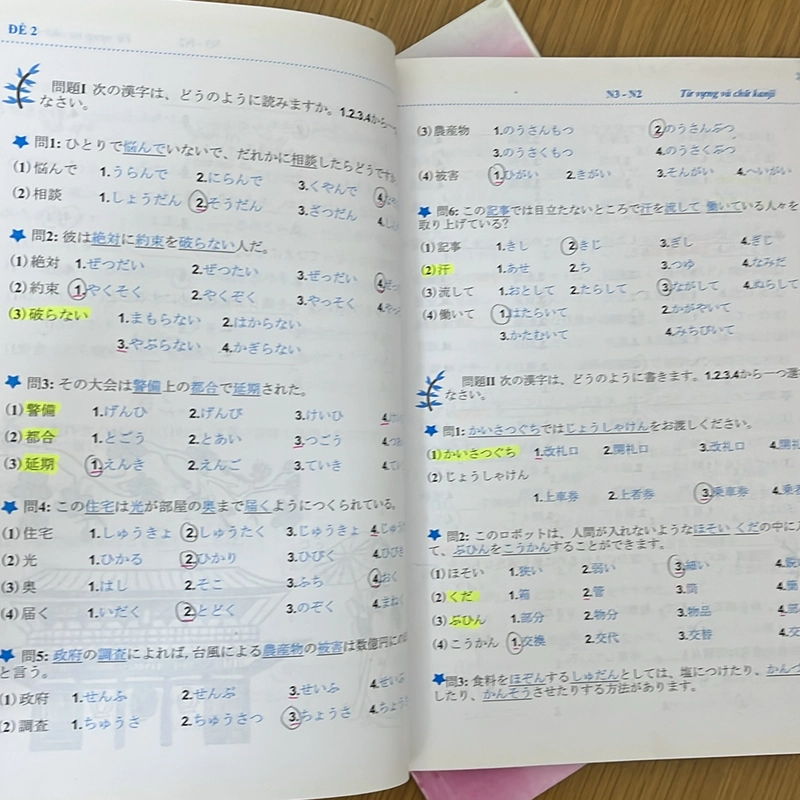 ĐỀ 2
問題I 次の漢字は、どのように読みますか。1.2.3.4から一つ
なさい。
問1: ひとりで悩んでいないで、だれかに相談したらどうです
(1) 悩んで 1.うらんで 2.にらんで 3.くやんで 4.
(2) 相談 1.しょうだん 2.そうだん 3.ざつだん 4.
問2: 彼は絶対に約束を破らない人だ。
(1) 絶対 1.ぜつだい 2.ぜったい 3.ぜっだい 4.
(2) 約束 1.やくそく 2.やくぞく 3.やっそく 4.やっ
(3) 破らない 1.まもらない 2.はからない
3.やぶらない 4.かぎらない
問3: その大会は警備上の都合で延期された。
(1) 警備 1.げんひ 2.げんび 3.けいひ 4.
(2) 都合 1.とごう 2.とあい 3.つごう 4.
(3) 延期 1.えんき 2.えんご 3.ていき 4.
問4: この住宅は光が部屋の奥まで届くようにつくられている。
(1) 住宅 1.しゅうきょ 2.しゅうたく 3.じゅうきょ 4.じゅう
(2) 光 1.ひかる 2.ひかり 3.ひびく 4.ひびき
(3) 奥 1.はし 2.そこ 3.ふち 4.おく
(4) 届く 1.いだく 2.とどく 3.のぞく 4.まね
問5: 政府の調査によれば, 台風による農産物の被害は数億円にの
と言う。
(1) 政府 1.せんふ 2.せんぷ 3.せいふ 4.せい
(2) 調査 1.ちゅうさ 2.ちゅうさつ 3.ちょうさ 4.ちょう
N3 - N2 Từ vựng và chữ kanji
(3) 農産物 1.のうさんもつ 2.のうさんぶつ
3.のうさくもつ 4.のうさくぶつ
(4) 被害 1.ひがい 2.きがい 3.そんがい 4.へいがい
問6: この記事では目立たないところで汗を流して 働いている人々を
取り上げている?
(1) 記事 1.きし 2.きじ 3.ぎし 4.ぎじ
(2) 汗 1.あせ 2.ち 3.つゆ 4.なみだ
(3) 流して 1.おとして 2.たらして 3.ながして 4.ぬらして
(4) 働いて 1.はたらいて 2.かがやいて
3.かたむいて 4.みちびいて
問題II 次の漢字は、どのように書きます。1.2.3.4から一つ選
なさい。
問1: かいさつぐちではじょうしゃけんをお渡しください。
(1) かいさつぐち 1.改札口 2.開札口 3.改礼口 4.開礼
(2) じょうしゃけん
1.上車券 2.上者券 3.乗車券 4.乗者
問2: このロボットは、人間が入れないようなほそい くだの中に入
て、ぶひんをこうかんすることができます。
(1) ほそい 1.狭い 2.弱い 3.細い 4.
(2) くだ 1.箱 2.管 3.筒 4.
(3) ぶひん 1.部分 2.物分 3.物品 4.部
(4) こうかん 1.交換 2.交代 3.交替 4.交
問3: 食料をほぞんするしゅだんとしては、塩につけたり、かんづ
したり、かんそうさせたりする方法があります。